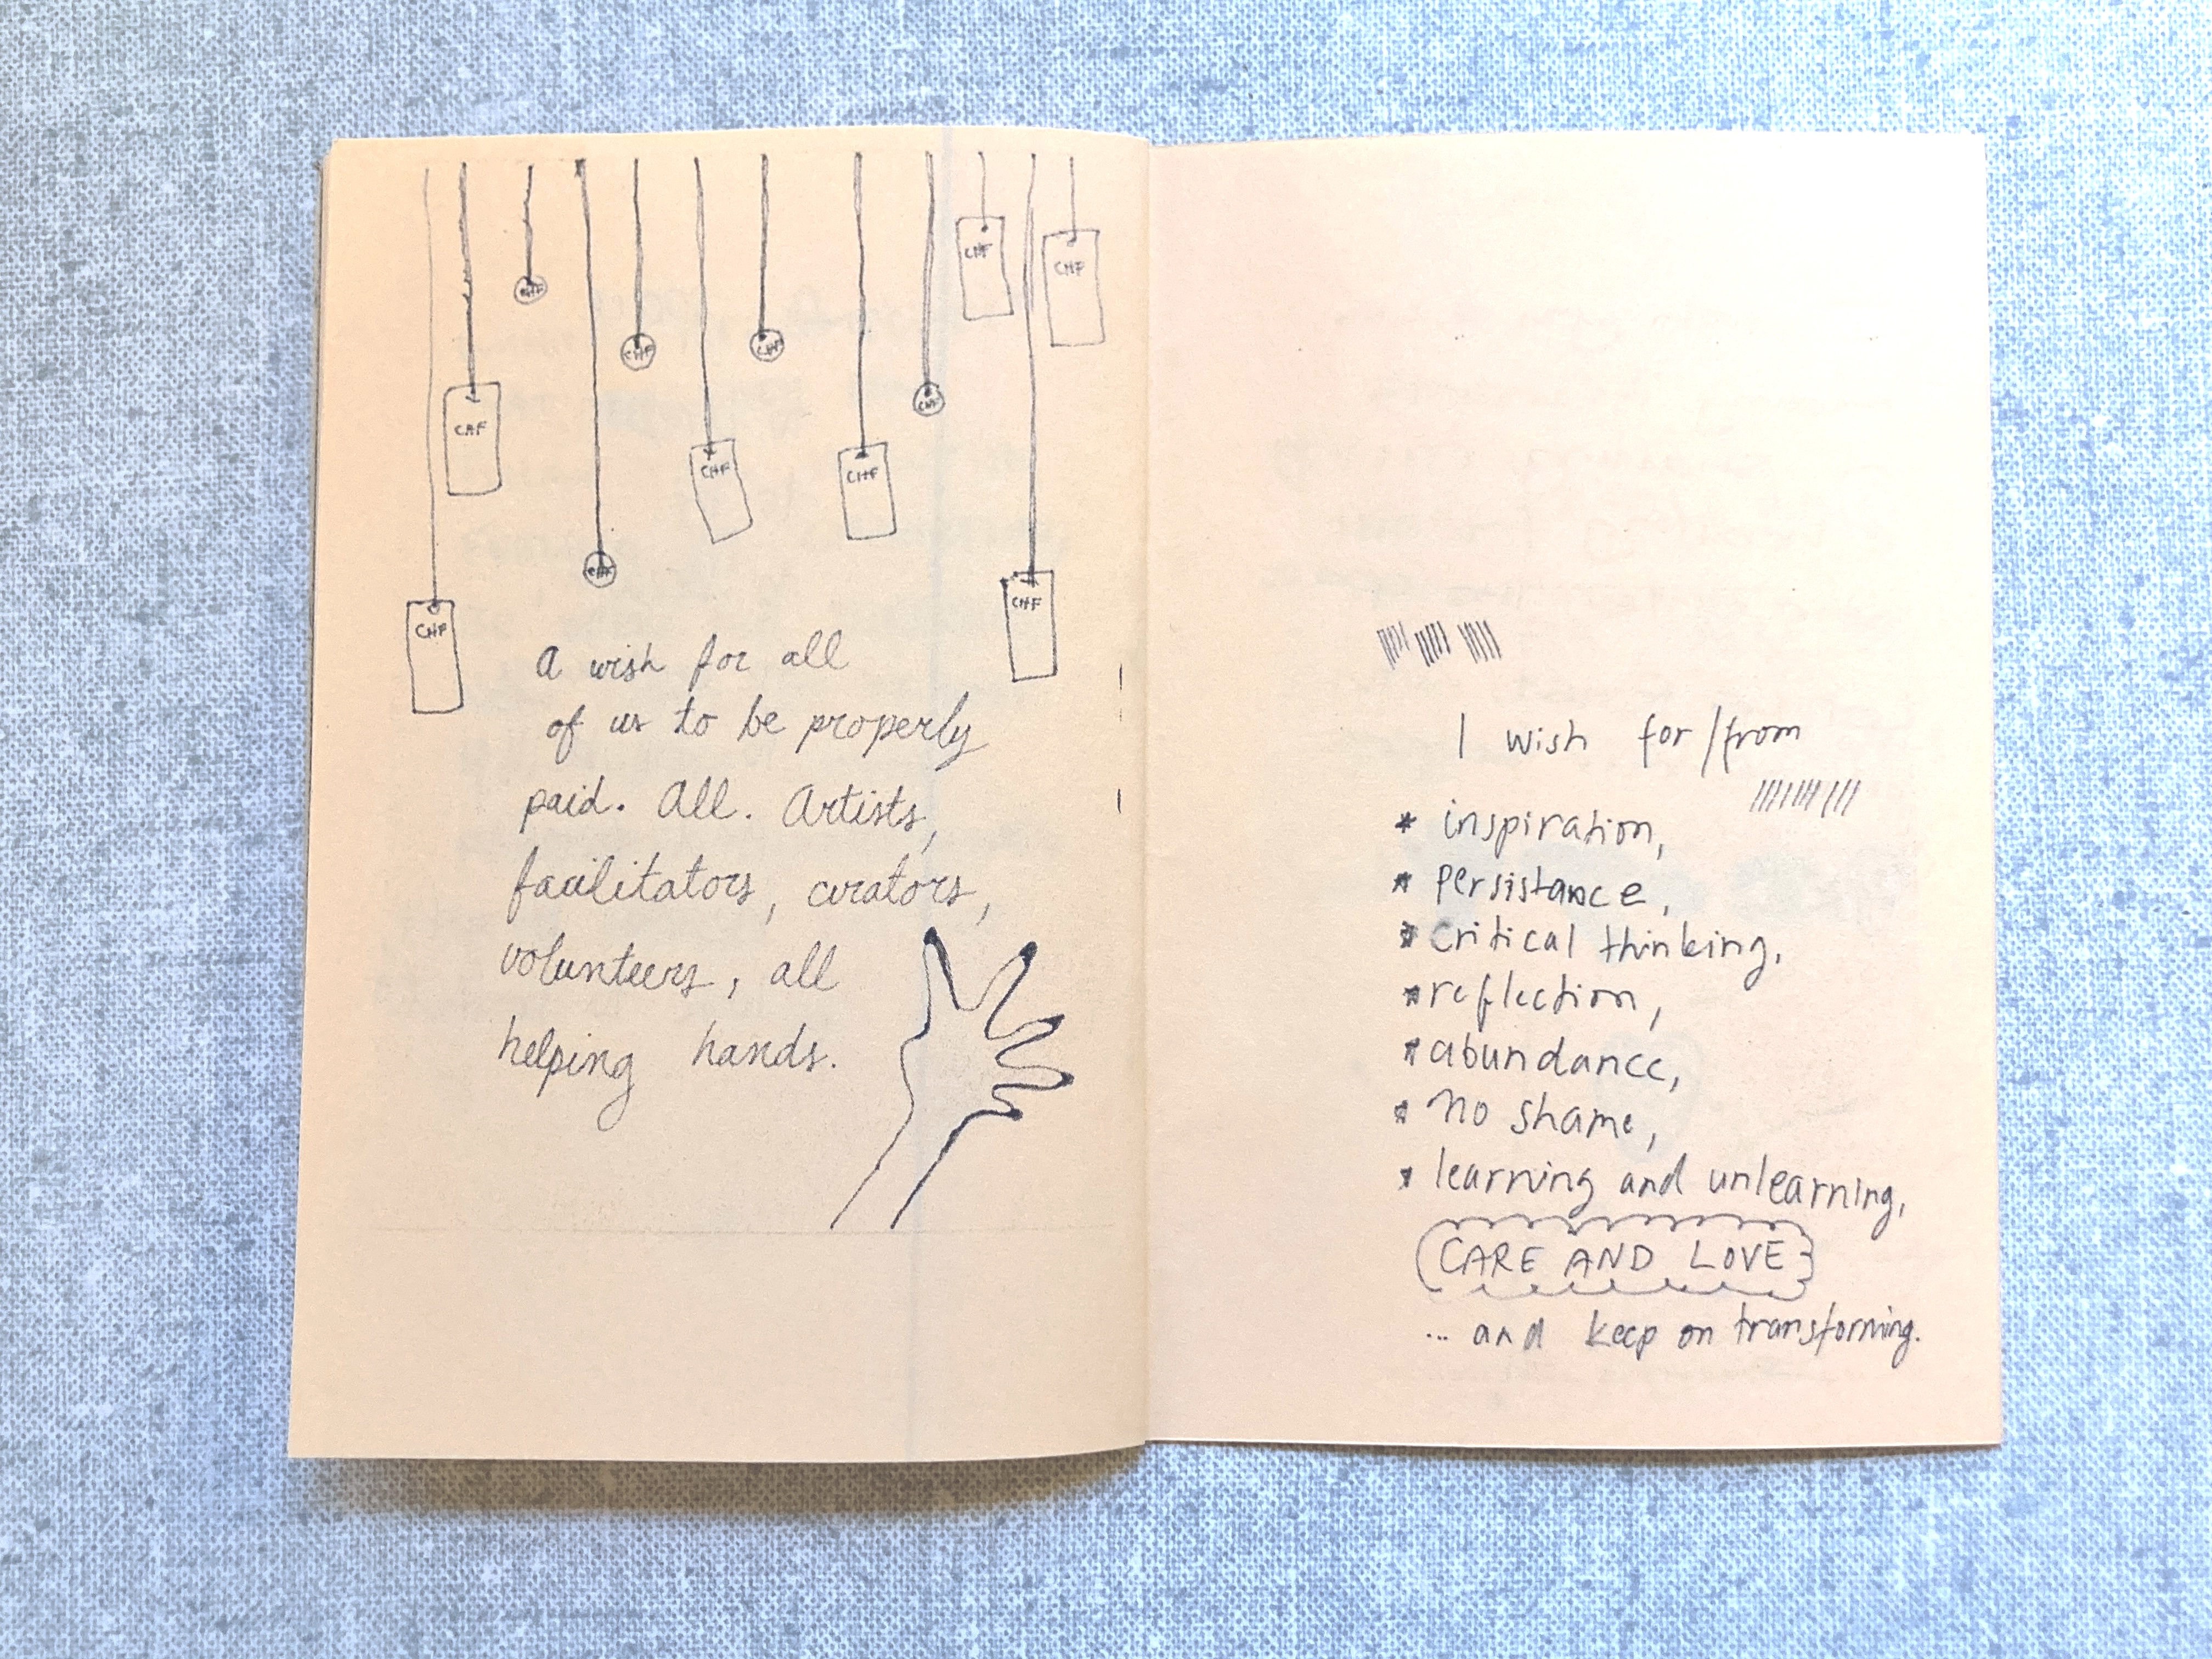 CHF
CHF
CHF
CHF
CHF
CHF
CHF
CHF
CHF
CHF
CHF
CHF
CHF
a wish for all
of us to be properly
paid. All. Artists,
facilitators, curators,
volunteers, all
helping hands.
I wish for/from
* inspiration,
* persistance,
* critical thinking,
* reflection,
* abundance,
* no shame,
* learning and unlearning,
CARE AND LOVE
... and keep on transforming.